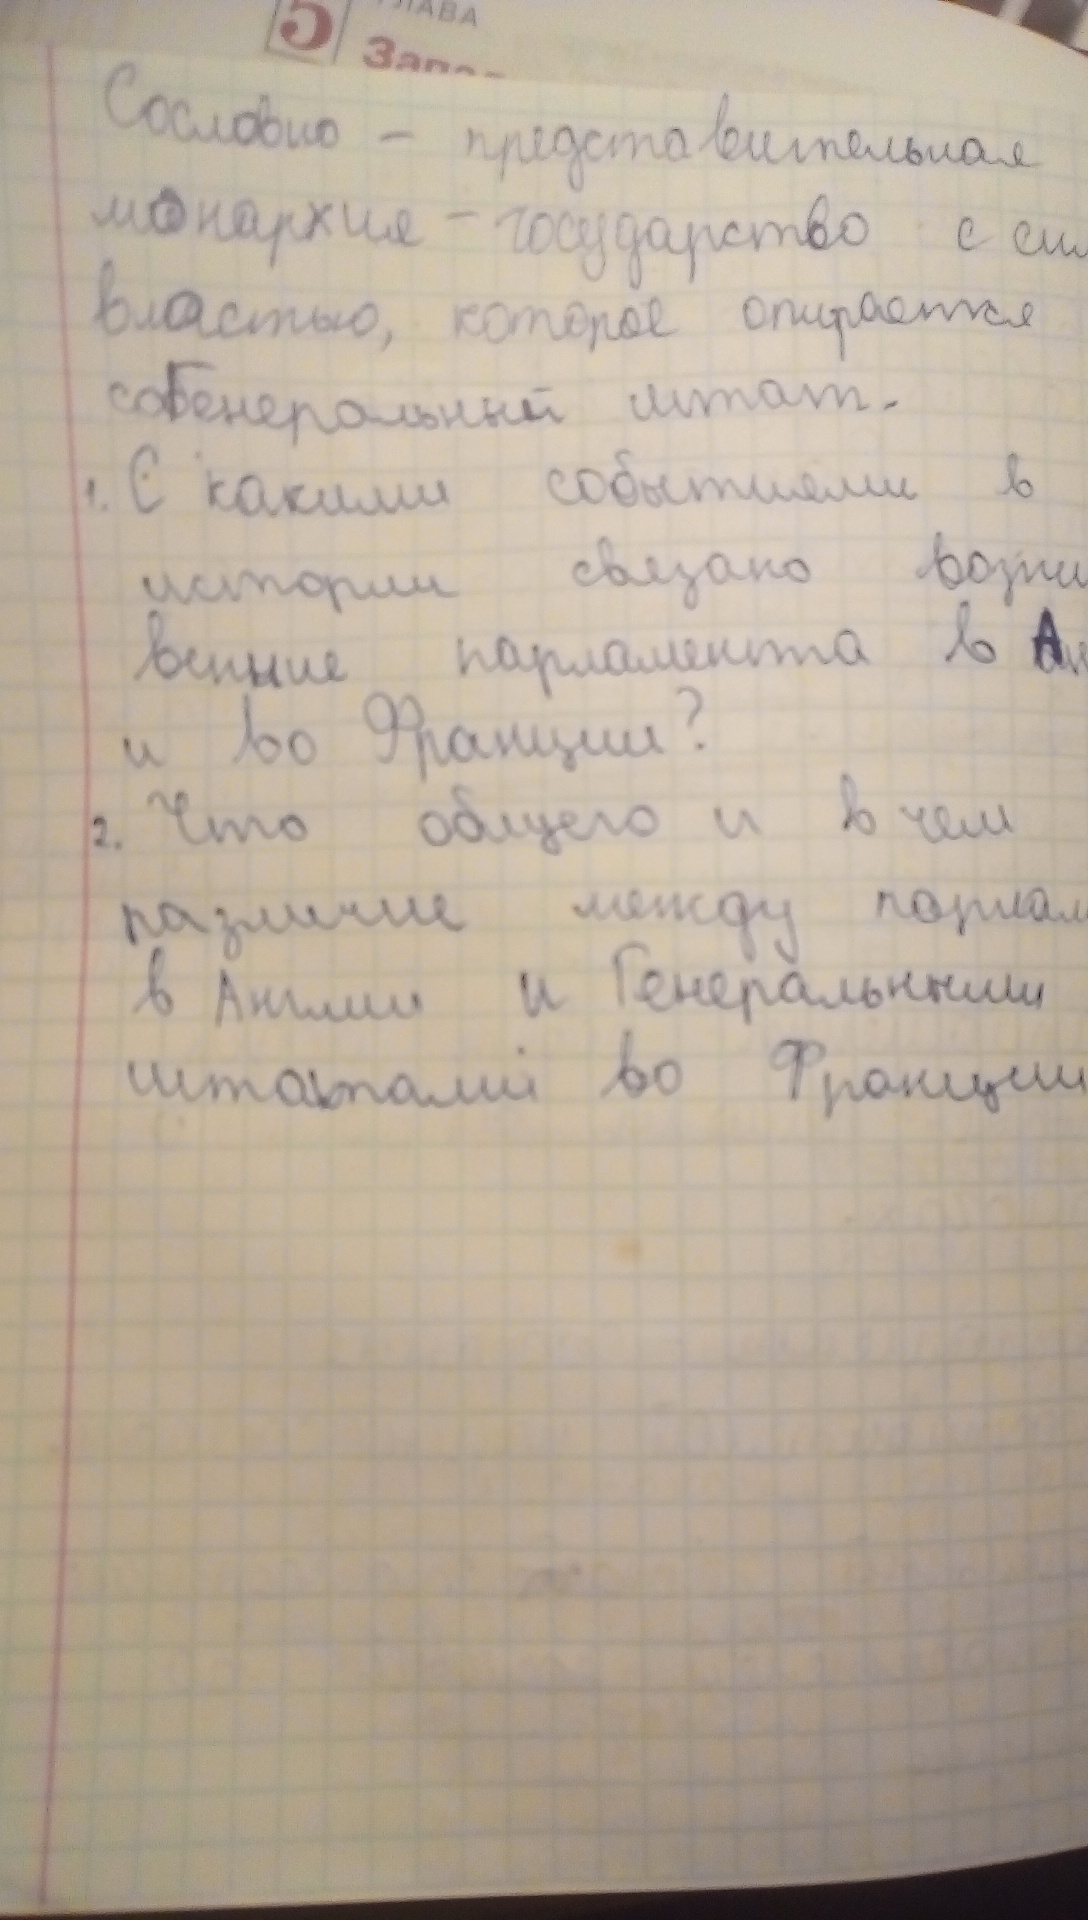 5 ГЛАВА
Сословно - представительная
монархия - государство с сил
властью, которое опирается
собГенеральный штат.
1. С какими событиями в
истории связано возни
вение парламента в Ан
и во Франции?
2. Что общего и в чем
различие между парлам
в Англии и Генеральными
штатами во Франции